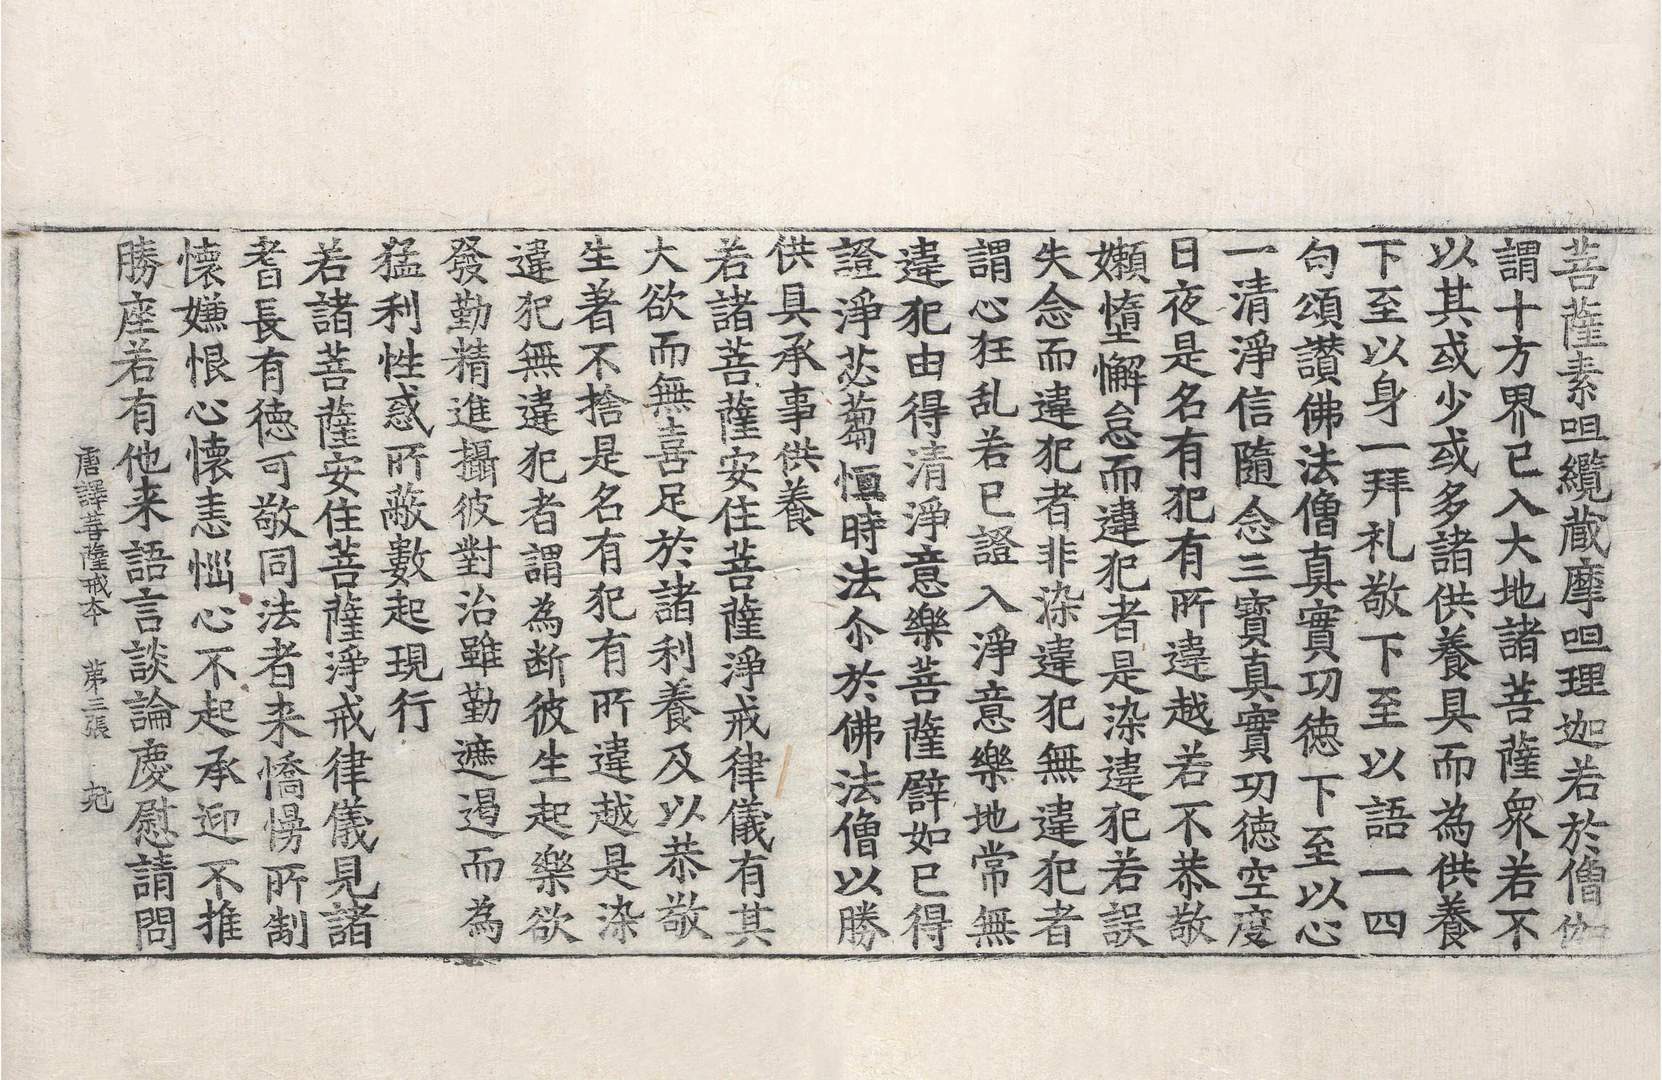 菩薩素呾纜蔵摩呾理迦若於僧伽
謂十方界已入大地諸菩薩衆若不
以其或少或多諸供養具而為供養
下至以身一拜礼敬下至以語一四
句頌讃佛法僧真實功徳下至以心
一清淨信隨念三寶真實功徳空度
日夜是名有犯有所違越若不恭敬
嬾惰懈怠而違犯者是染違犯若誤
失念而違犯者非染違犯無違犯者
謂心狂乱若已證入淨意樂地常無
違犯由得清淨意樂菩薩譬如已得
證淨苾蒭恒時法尒於佛法僧以勝
供具承事供養
若諸菩薩安住菩薩淨戒律儀有其
大欲而無喜足於諸利養及以恭敬
生著不捨是名有犯有所違越是染
違犯無違犯者謂為断彼生起樂欲
發勤精進攝彼對治雖勤遮遏而為
猛利性惑所蔽數起現行
若諸菩薩安住菩薩淨戒律儀見諸
耆長有徳可敬同法者来憍慢所制
懐嫌恨心懐恚惱心不起承迎不推
勝座若有他来語言談論慶慰請問
唐譯菩薩戒本 第三張